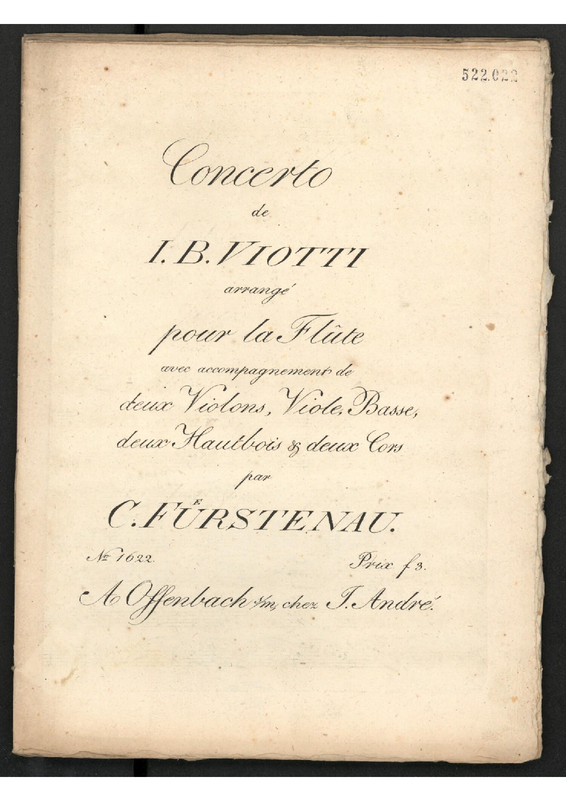 522.022
Concerto
de
I. B. VIOTTI
arrangé
pour la Flûte
avec accompagnement de
deux Violons, Viole, Basse,
deux Hautbois & deux Cors
par
C. FÜRSTENAU.
No 1622. Prix f 3.
A Offenbach s/m, chez J. André.